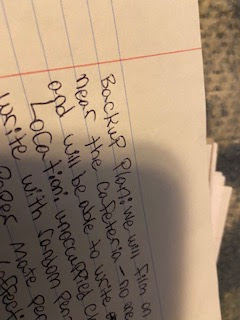 Backup Plan: we will film on
near the cafeteria - no one
and will be able to write on
Location: unoccupied
write with random pen
Paper mate pe